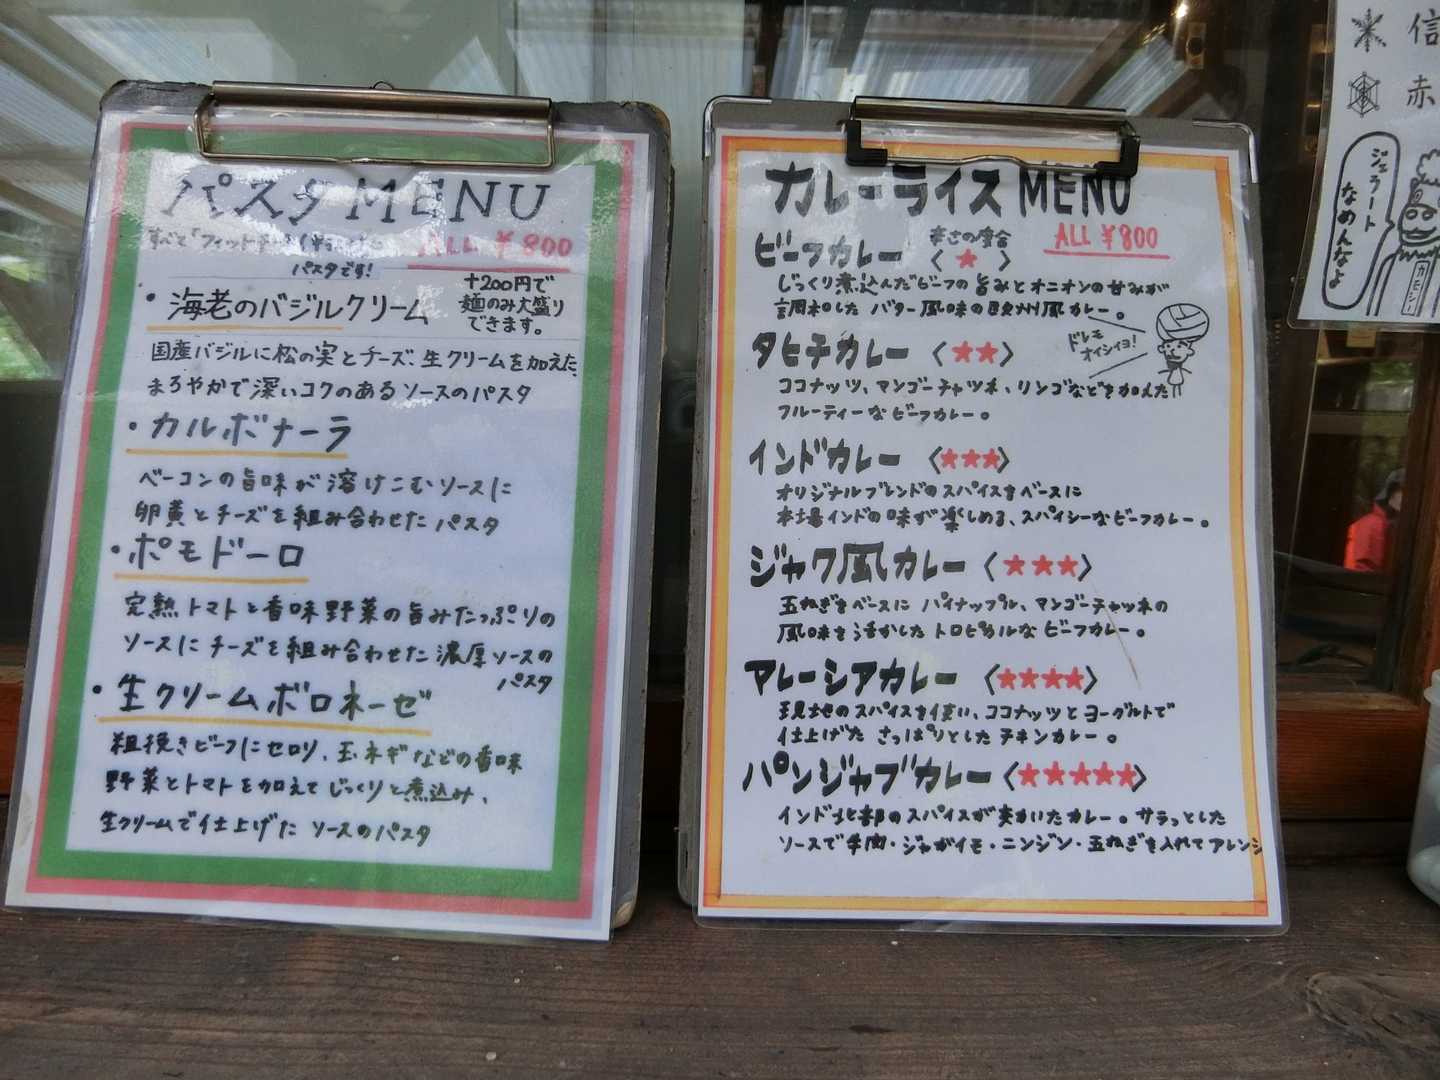 パスタ MENU
すべて「フィットチーネ」(平うち)の
パスタです!
ALL ¥800
+200円で
麺のみ大盛り
できます。
・海老のバジルクリーム
国産バジルに松の実とチーズ、生クリームを加えた、
まろやかで深いコクのあるソースのパスタ
・カルボナーラ
ベーコンの旨味が溶けこむソースに
卵黄とチーズを組み合わせたパスタ
・ポモドーロ
完熟トマトと香味野菜の旨みたっぷりの
ソースにチーズを組み合わせた濃厚ソースの
パスタ
・生クリームボロネーゼ
粗挽きビーフにセロリ、玉ネギなどの香味
野菜とトマトを加えてじっくりと煮込み、
生クリームで仕上げた ソースのパスタ
カレーライス MENU
ALL ¥800
辛さの度合
ビーフカレー〈★〉
じっくり煮込んだビーフの旨みとオニオンの甘みが
調和した バター風味の欧州風カレー。
ドレモ
オイシイヨ!
タヒチカレー〈★★〉
ココナッツ、マンゴーチャツネ、リンゴなどを加えた
フルーティーなビーフカレー。
インドカレー〈★★★〉
オリジナルブレンドのスパイスをベースに
本場インドの味が楽しめる、スパイシーなビーフカレー。
ジャワ風カレー〈★★★〉
玉ねぎをベースに パイナップル、マンゴーチャツネの
風味を活かした トロピカルなビーフカレー。
マレーシアカレー〈★★★★〉
現地のスパイスを使い、ココナッツとヨーグルトで
仕上げた さっぱりとしたチキンカレー。
パンジャブカレー〈★★★★★〉
インド北部のスパイスが実かいたカレー。サラっとした
ソースで牛肉・ジャガイモ・ニンジン・玉ねぎを入れてアレンジ
信
赤
ジェラート
なめんなよ